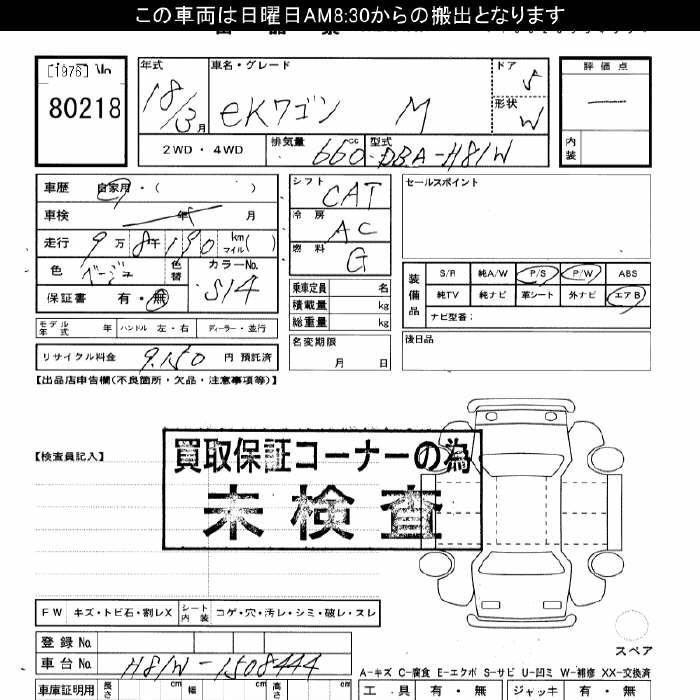 この車両は日曜日AM8:30からの搬出となります
[1976] No
80218
年式 18/3月
車名・グレード eKワゴン M
ドア 5
形状 W
評価点 —
内装
2WD・4WD
排気量 660cc 型式 DBA-H81W
車歴 自家用・( )
車検 年 月
走行 9万8千190 km マイル( )
色 ベージュ 色替 カラーNo. S14
保証書 有・無
モデル年式 年 ハンドル 左・右 ディーラー・並行
リサイクル料金 9,150 円 預託済
シフト CAT
冷房 AC
燃料 G
乗車定員 名
積載量 kg
総重量 kg
名変期限 月 日
セールスポイント
装備品 S/R 純A/W P/S P/W ABS
純TV 純ナビ 革シート 外ナビ エアB
ナビ型番:
後日品
【出品店申告欄(不良箇所・欠品・注意事項等)】
【検査員記入】
買取保証コーナーの為
未検査
FW キズ・トビ石・割レX シート内装 コゲ・穴・汚レ・シミ・破レ・スレ
登録No
車台No H81W-1508444
車庫証明用 長さ cm 幅 cm 高さ cm
スペア
A-キズ C-腐食 E-エクボ S-サビ U-凹ミ W-補修 XX-交換済
工具 有・無 ジャッキ 有・無